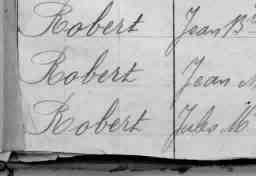 Robert Jean B
Robert Jean M
Robert Jules M